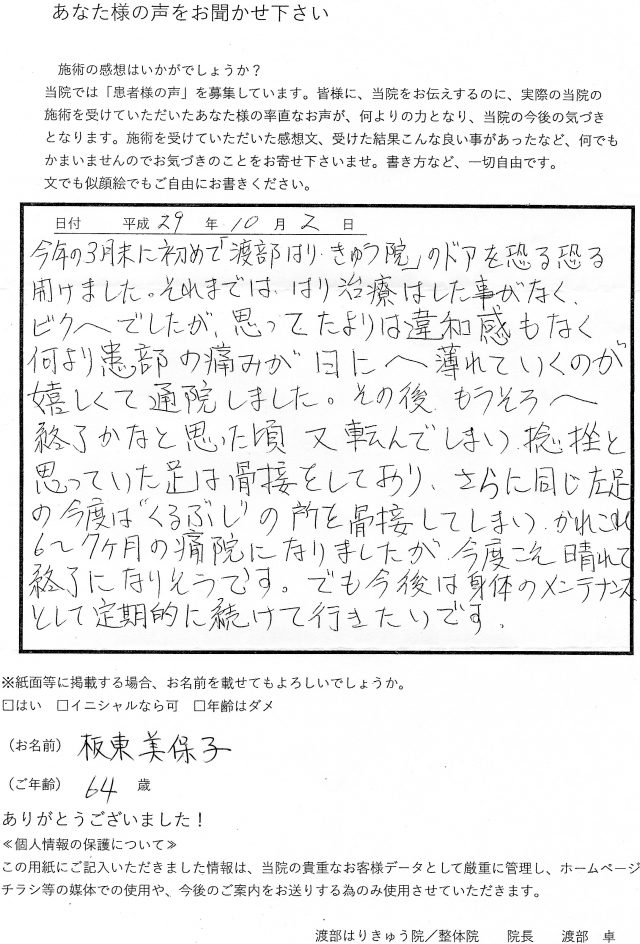 あなた様の声をお聞かせ下さい
施術の感想はいかがでしょうか？
当院では「患者様の声」を募集しています。皆様に、当院をお伝えするのに、実際の当院の
施術を受けていただいたあなた様の率直なお声が、何よりの力となり、当院の今後の気づき
となります。施術を受けていただいた感想文、受けた結果こんな良い事があったなど、何でも
かまいませんのでお気づきのことをお寄せ下さいませ。書き方など、一切自由です。
文でも似顔絵でもご自由にお書きください。
日付 平成 29 年 10 月 2 日
今年の3月末に初めて「渡部はり・きゅう院」のドアを恐る恐る
開けました。それまでは、はり治療はした事がなく、
ビク〱でしたが、思ってたよりは違和感もなく
何より患部の痛みが日に〱薄れていくのが
嬉しくて通院しました。その後、もうそろ〱
終了かなと思った頃 又転んでしまい、捻挫と
思っていた足は骨接をしてあり、さらに同じ左足
の今度は"くるぶし"の所を骨接してしまい、かれこれ
6〜7ヶ月の痛院になりましたが、今度こそ晴れて
終了になりそうです。でも今後は身体のメンテナンス
として定期的に続けて行きたいです。
※紙面等に掲載する場合、お名前を載せてもよろしいでしょうか。
□はい □イニシャルなら可 □年齢はダメ
（お名前） 板東美保子
（ご年齢） 64 歳
ありがとうございました！
≪個人情報の保護について≫
この用紙にご記入いただきました情報は、当院の貴重なお客様データとして厳重に管理し、ホームページ
チラシ等の媒体での使用や、今後のご案内をお送りする為のみ使用させていただきます。
渡部はりきゅう院／整体院 院長 渡部 卓